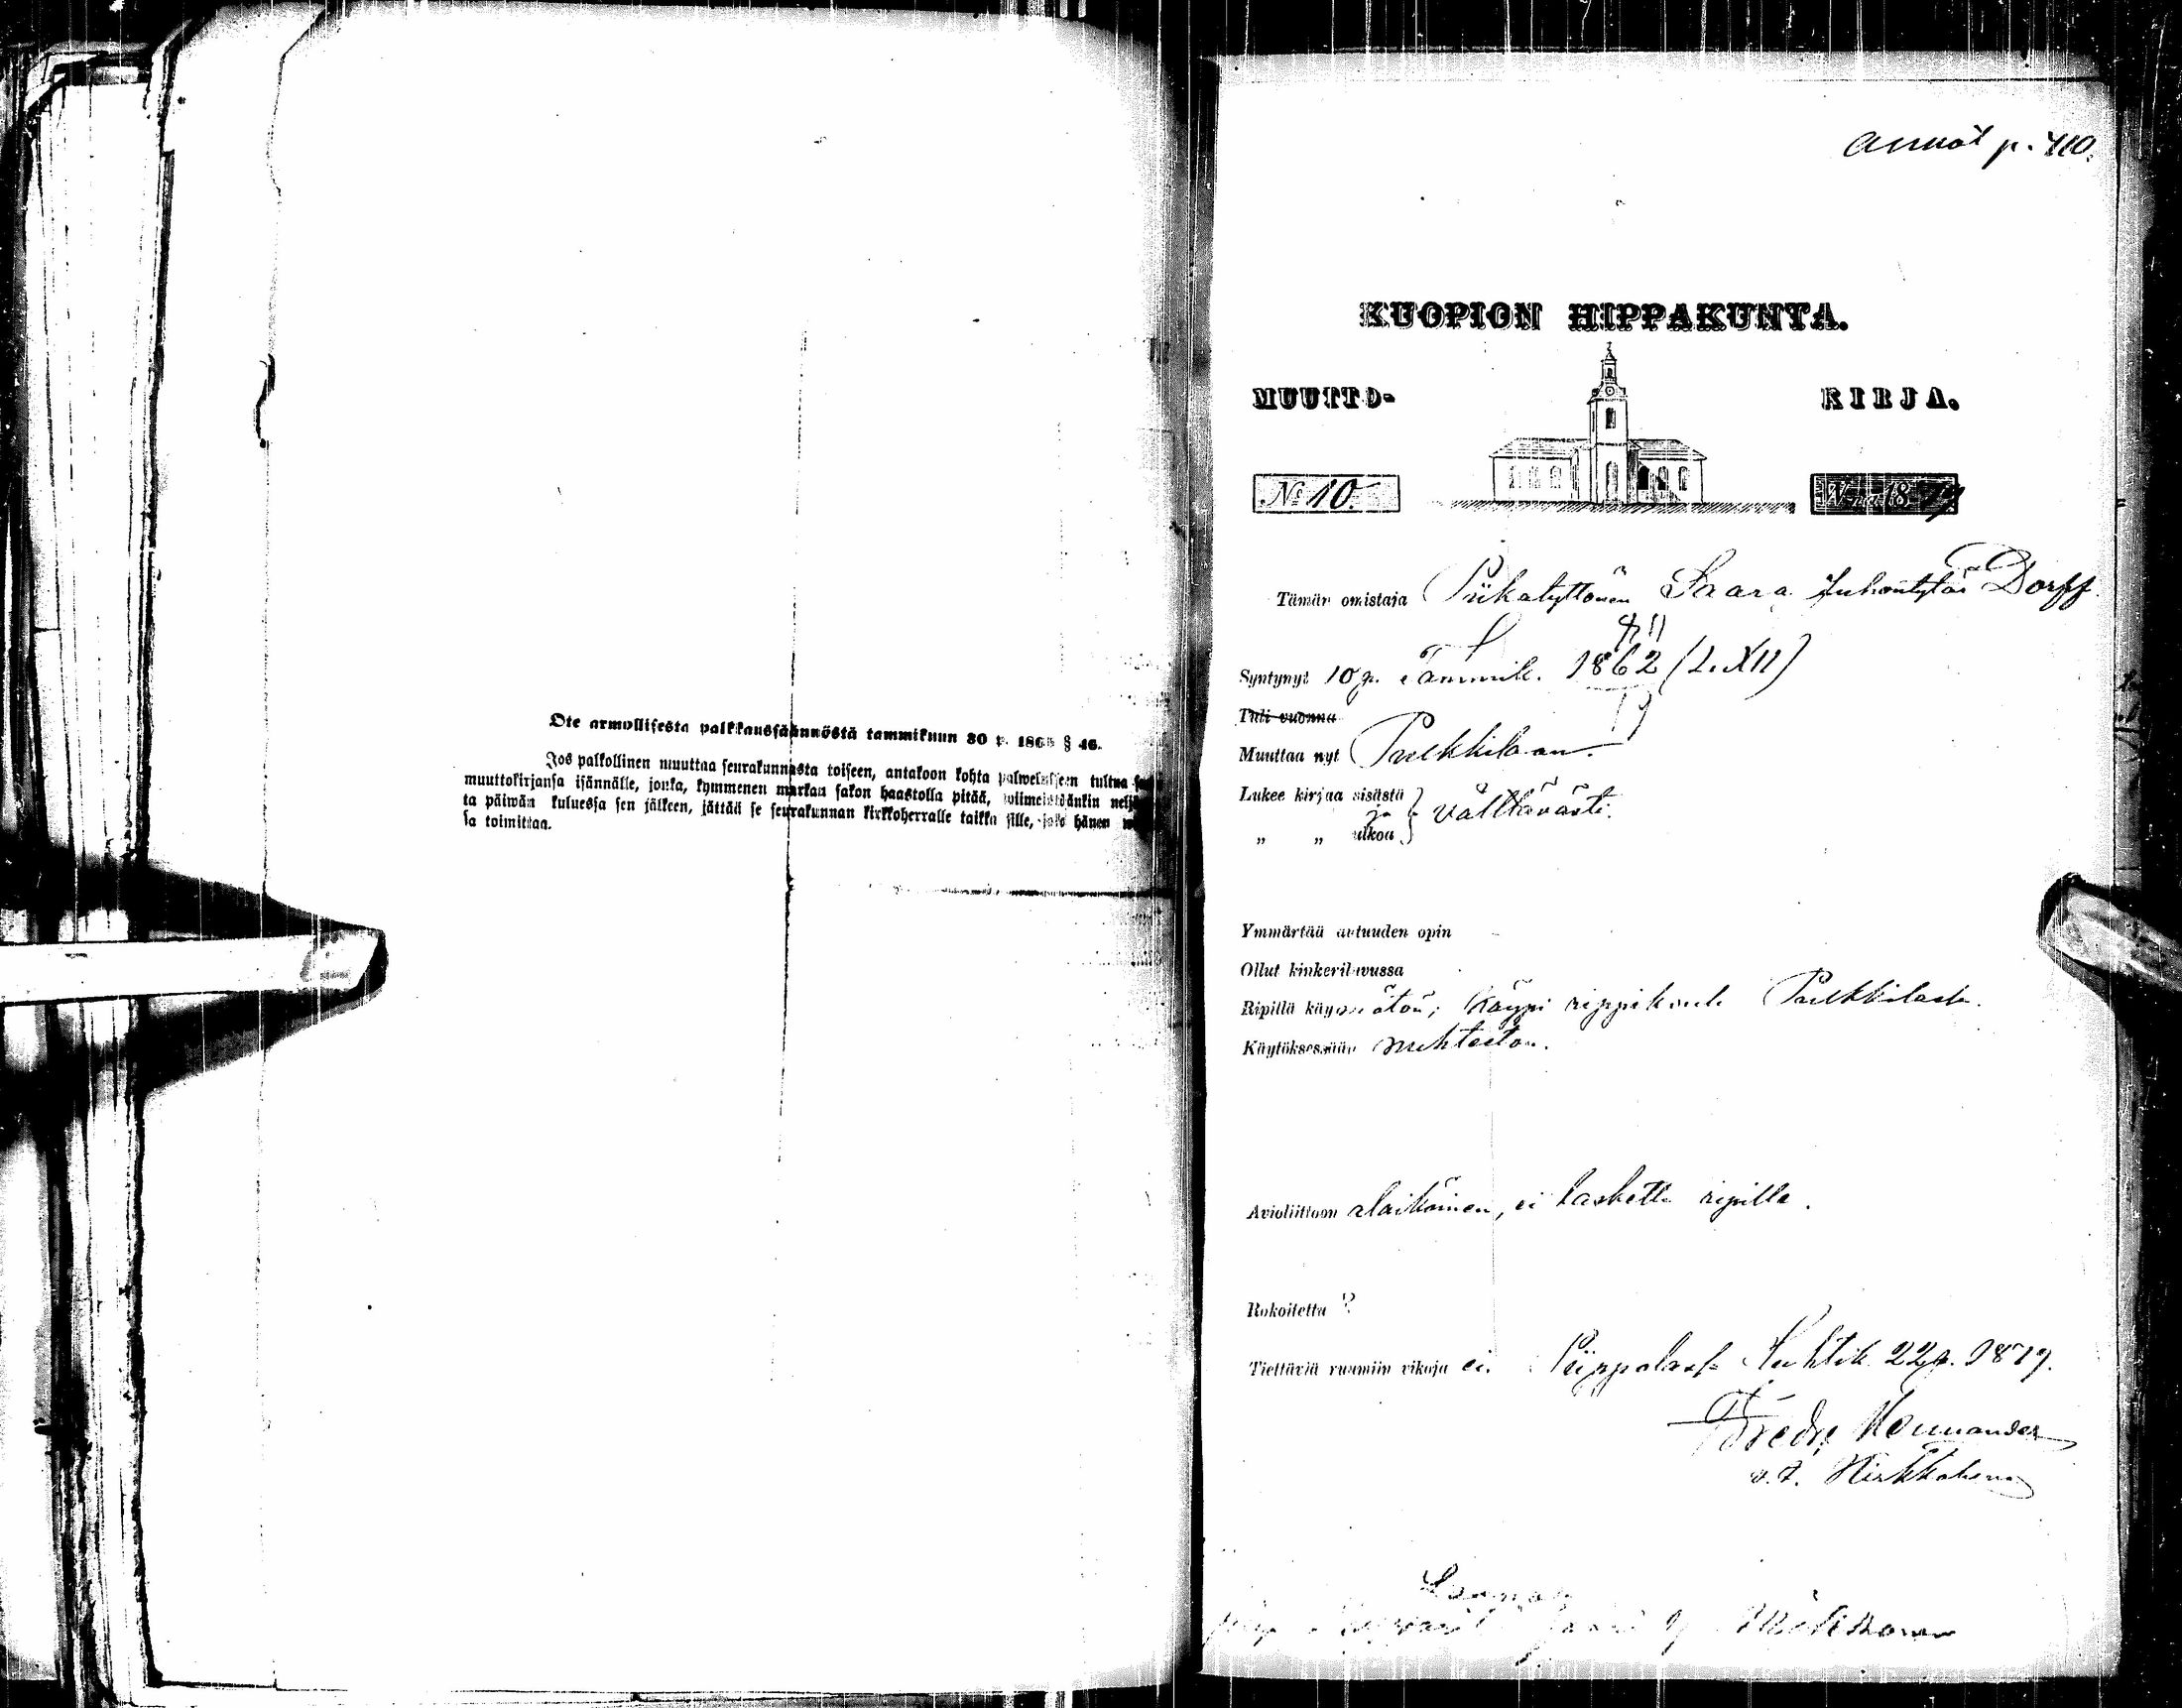 Ote armollisesta palkkaussäännöstä tammikuun 30 p. 1865 § 46.
Jos palkollinen muuttaa seurakunnasta toiseen, antakoon kohta palwelukseen tultua
muuttokirjansa isännälle, jonka, kymmenen markan sakon haastolla pitää, wiimeistäänkin
ta päiwän kuluessa sen jälkeen, jättää se seurakunnan kirkkoherralle taikka sille, joka hänen
sa toimittaa.
p. 410.
KUOPION HIPPAKUNTA.
MUUTTO- KIRJA.
№ 10. W:na 1879
Tämän omistaja Piikatyttönen Saara Juhontytär Dorff.
Syntynyt 10 p. Tammik. 1862 (L. XII)
Tuli vuonna
Muuttaa nyt Pulkkilaan
Lukee kirjaa sisästä
ja välttävästi.
„ „ ulkoa
Ymmärtää autuuden opin
Ollut kinkeriluvussa
Ripillä käymätön; käypi rippikoulu Pulkkilassa.
Käytöksessään nuhteeton.
Avioliittoon alaikäinen, ei laskettu ripille.
Rokoitettu ?
Tiettäviä ruumiin vikoja ei. Piippolassa Huhtik. 22 p. 1879.
Fredr.
v. t. Kirkkoherra